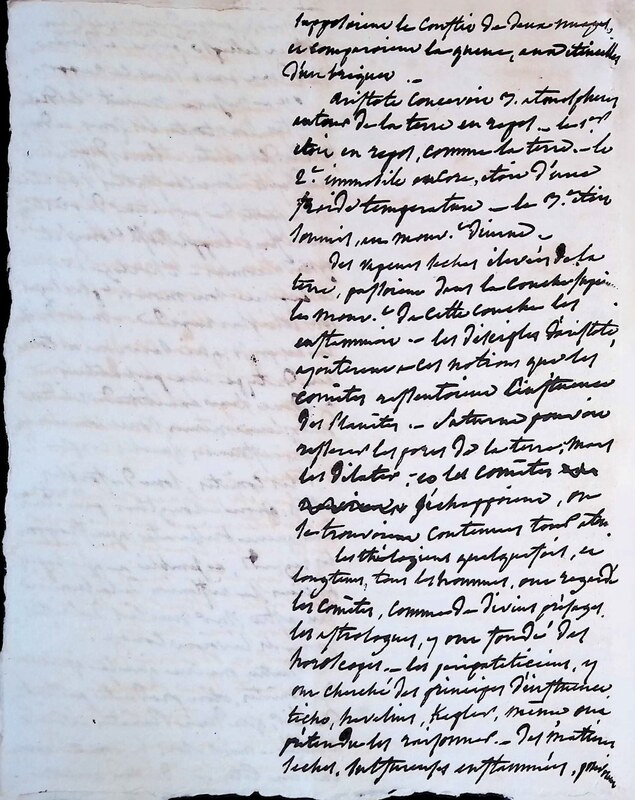 supposoient le conflit de deux nuages,
et comparoient la queue, aux étincelles
d'un briquet. –
aristote concevoit 3. atmospheres
autour de la terre en repos – la 1.ere
étoit en repos, comme la terre. – la
2.e immobile encore, étoit d'une
froide temperature – la 3.e étoit
soumise, au mouv.t diurne –
des vapeurs seches élevées de la
terre, passoient dans la couche super.
le mouv.t de cette couche les
enflammoit – les disciples d'aristote
ajouterent à ces notions que les
cométes ressentoient l'influence
des Planétes. – Saturne pouvoit
resserer les pores de la terre, Mars
les dilater – et les cométes
s'échappoient, ou
se trouvoient contenues tour à tour
les théologiens quelquefois, et
longtems, tous les hommes, ont regardé
les cométes, comme de divins présages.
les astrologues, y ont fondé des
horoscopes. – les péripatéticiens, y
ont cherché des principes d'influence
ticho, hevelius, Kepler, même ont
prétendu les raisonner. – des matières
seches, sulfureuses enflammées,